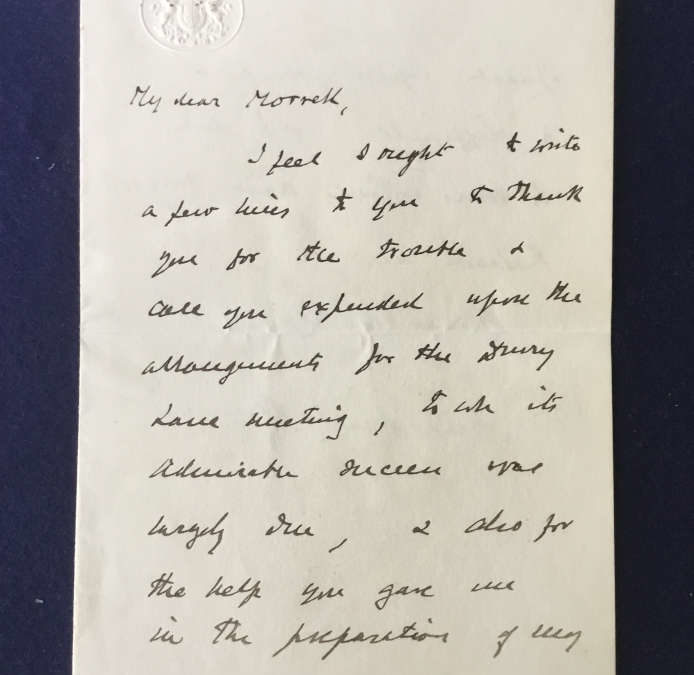 My dear Morrell,
I feel I ought to write
a few lines to you to thank
you for the trouble &
care you expended upon the
arrangements for the Drury
Lane meeting, to wh its
admirable success was
largely due, & also for
the help you gave me
in the preparation of my